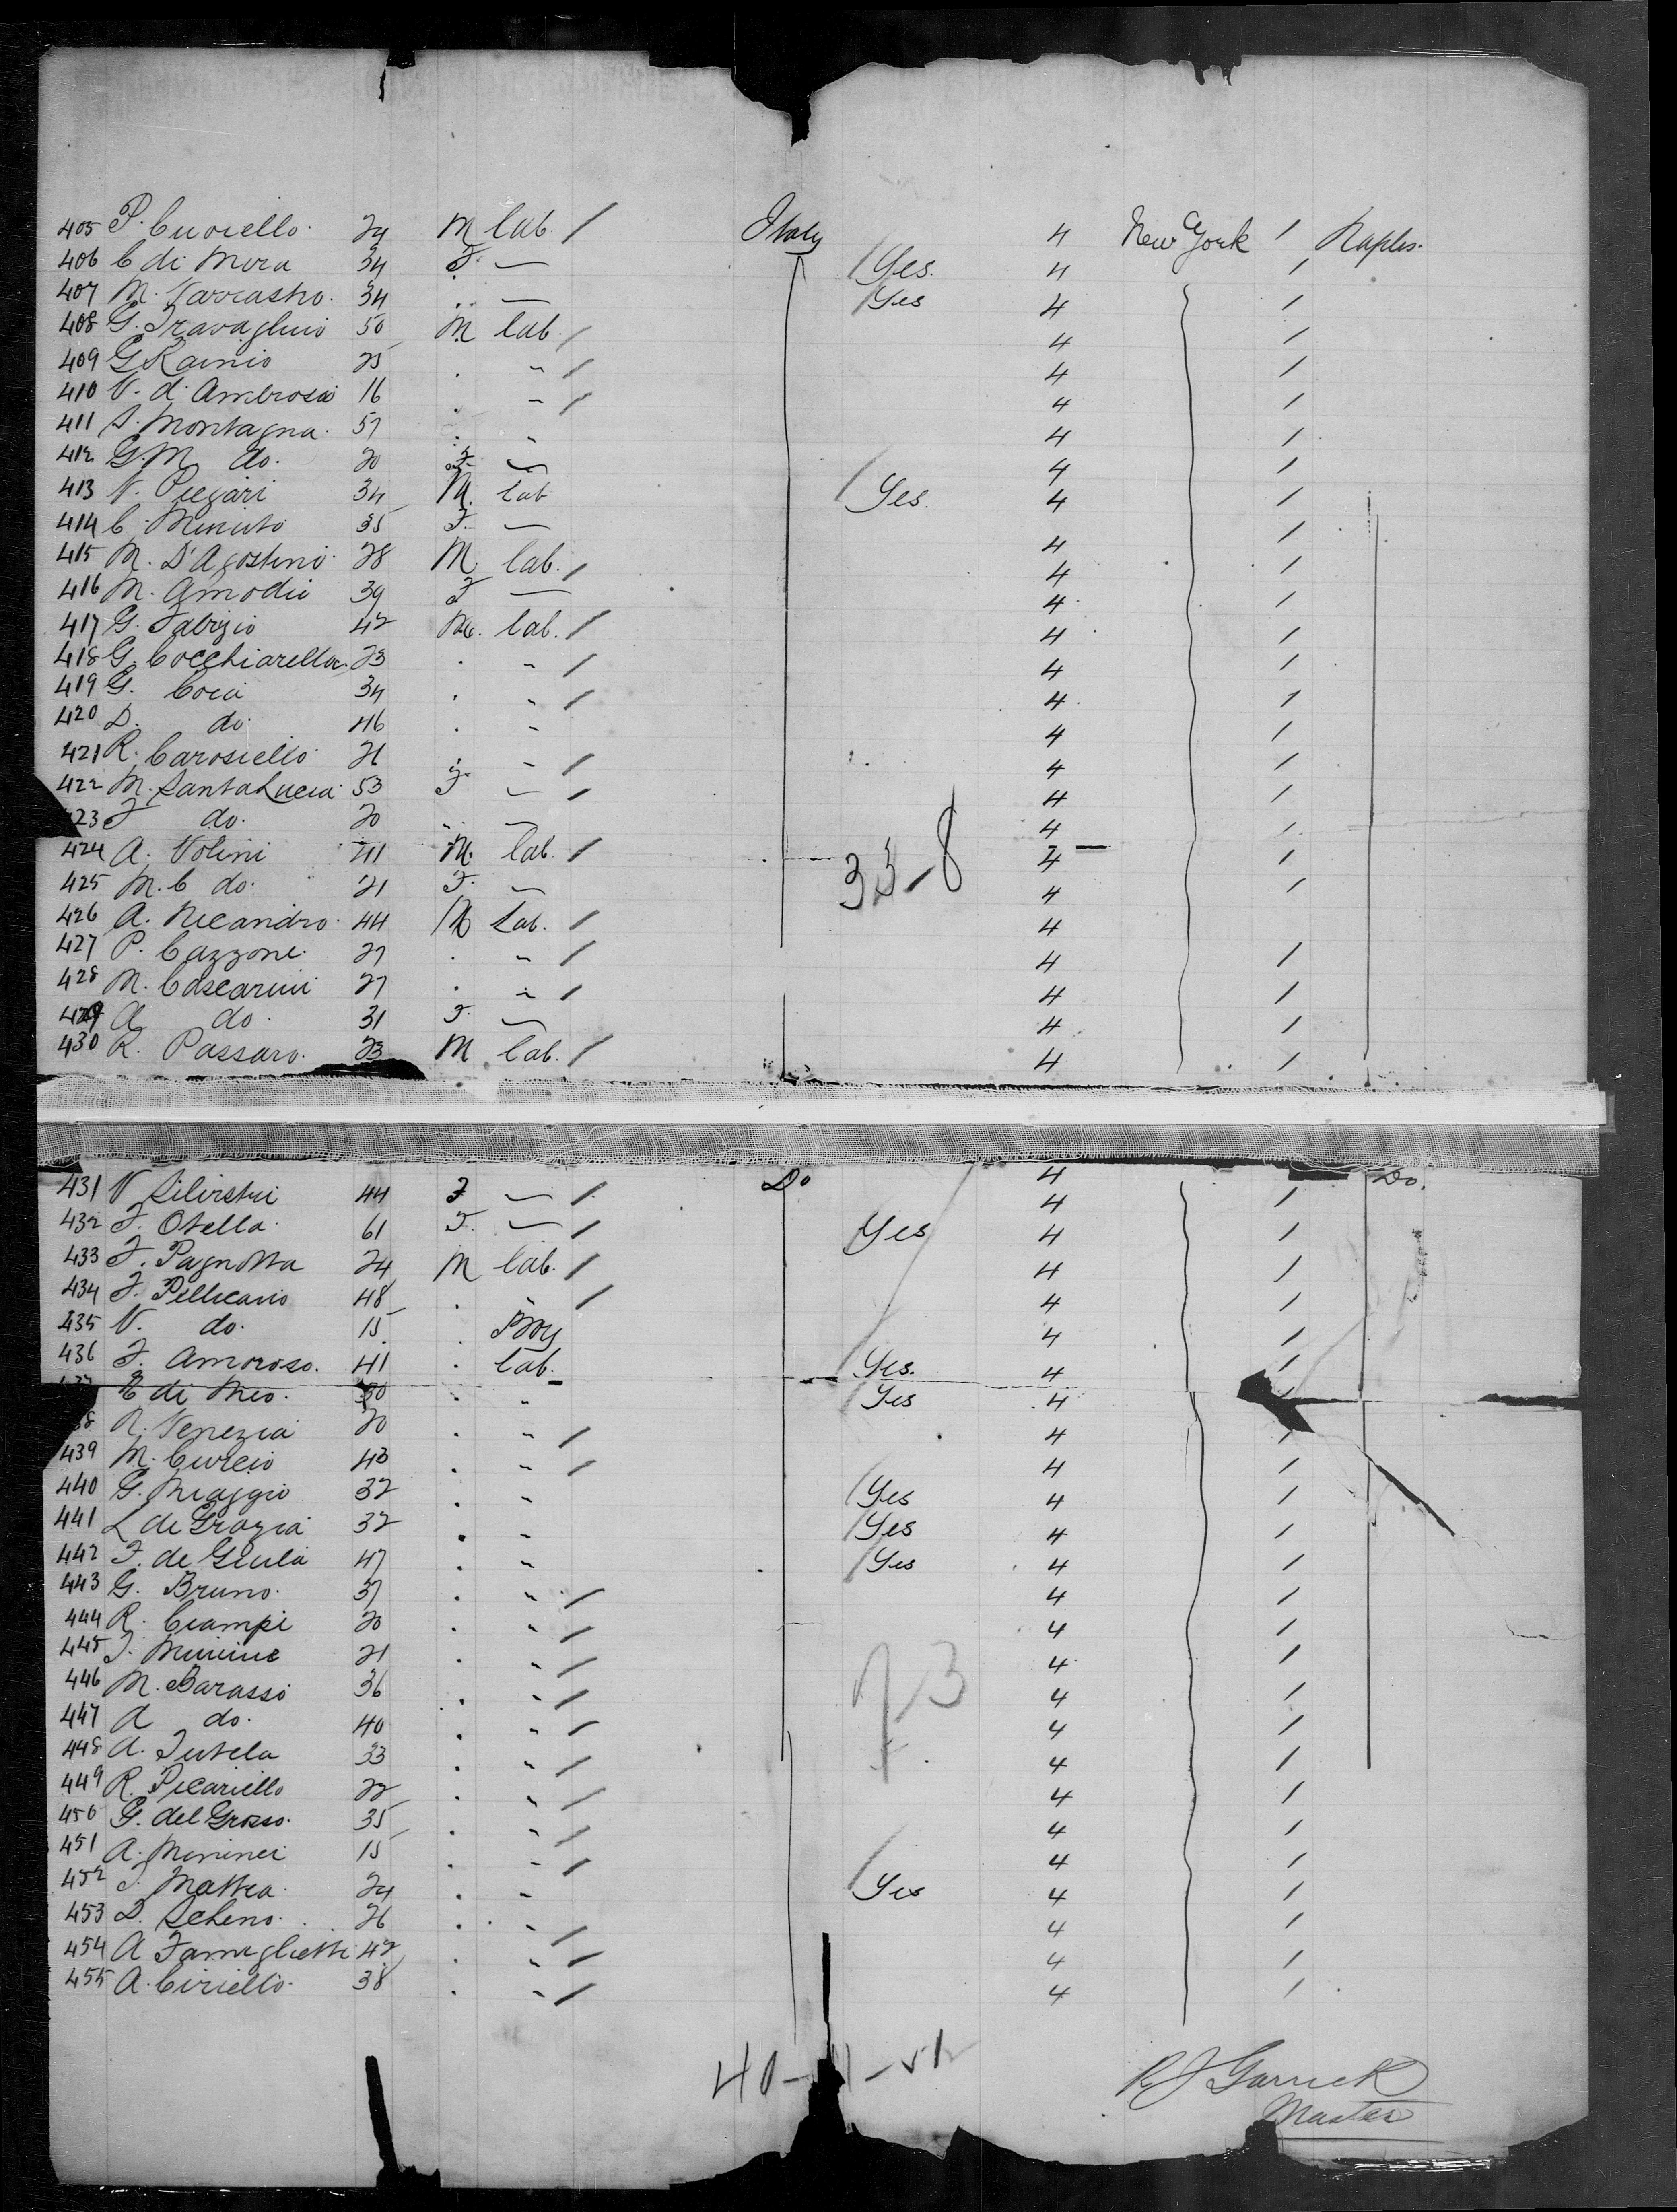 405 P. Curiello. 24 M lab. / Italy 4 New York / Naples.
406 C di Mura 34 F. — / Yes. 4 /
407 M. Varrastro. 34 . — / Yes 4 /
408 G. Travaglino 50 M lab. / 4 /
409 G Rainio 25 . " / 4 /
410 V. d'Ambrosio 16 . " / 4 /
411 S. Montagna. 57 . " 4 /
412 G.M do. 20 F — 4 /
413 V. Picgari 34 M. lab / Yes. 4 /
414 C. Minuto 35 F. — 4 /
415 M. D'Agostino. 28 M lab. / 4 /
416 M. Amodio 39 F — 4 /
417 G. Fabrizio 42 M. lab. / 4 /
418 G. Cocchiarella. 23 . " / 4 /
419 G. Coca 34 . " / 4 /
420 D. do. 46 . " 4 /
421 R. Carosiello. 21 . " / 4 /
422 M. Santa Lucia 53 F — / 4 /
423 F do. 20 . — 4 /
424 A. Volini 41 M. lab. / 4 /
425 M. C do. 21 F. — 4 /
33-8
426 A. Nicandro. 44 M Lab. / 4
427 P. Cazzone. 27 . " / 4 /
428 M. Cascarini 27 . " / 4 /
429 A do. 31 F. — 4 /
430 R. Passaro. 23 M lab. / 4 /
Do 4 Do.
431 V Silvestri 44 F — / 4 /
432 F. Otella. 61 F. — / Yes 4 /
433 F. Pagnotta 24 M lab. / 4 /
434 F. Pellicano 48 . " / 4 /
435 V. do. 15 . Boy 4 /
436 F. Amoroso. 41 . lab. / Yes. 4 /
di Meo. 30 . " / Yes 4 /
38 N. Venezia 20 . " / 4 /
439 M. Curcio 43 . " / 4 /
440 G. Maggio 32 . " / Yes 4 /
441 L de Grazia 32 . " / Yes 4 /
442 F. de Giula 47 . " / Yes 4 /
443 G. Bruno. 37 . " / 4 /
444 R. Ciampi 20 . " / 4 /
445 21 . " / 4 /
446 M. Barassi 36 . " / 4 /
73
447 A do. 40 . " / 4 /
448 A. Tutela 33 . " / 4 /
449 R. Picariello 22 . " / 4 /
450 G. del Grosso. 35 . " / 4 /
451 A. Mininei 15 . " / 4 /
452 Mattia. 24 . " / Yes 4 /
453 D. Scheno. 26 . " / 4 /
454 A Famiglietti 42 . " / 4 /
455 A. Ciriello. 38 . " / 4 /
40-
R J Garrick
Master